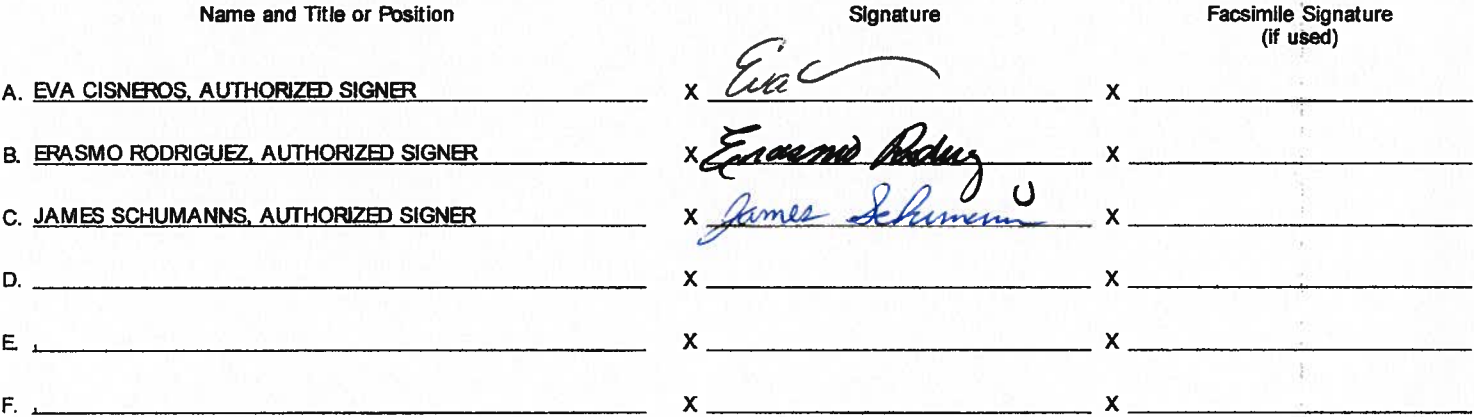 Name and Title or Position Signature Facsimile Signature
(if used)
A. EVA CISNEROS, AUTHORIZED SIGNER X Eva X
B. ERASMO RODRIGUEZ, AUTHORIZED SIGNER X Erasmo Rodrig X
C. JAMES SCHUMANNS, AUTHORIZED SIGNER X James Schumann X
D. X X
E. , X X
F. , X X